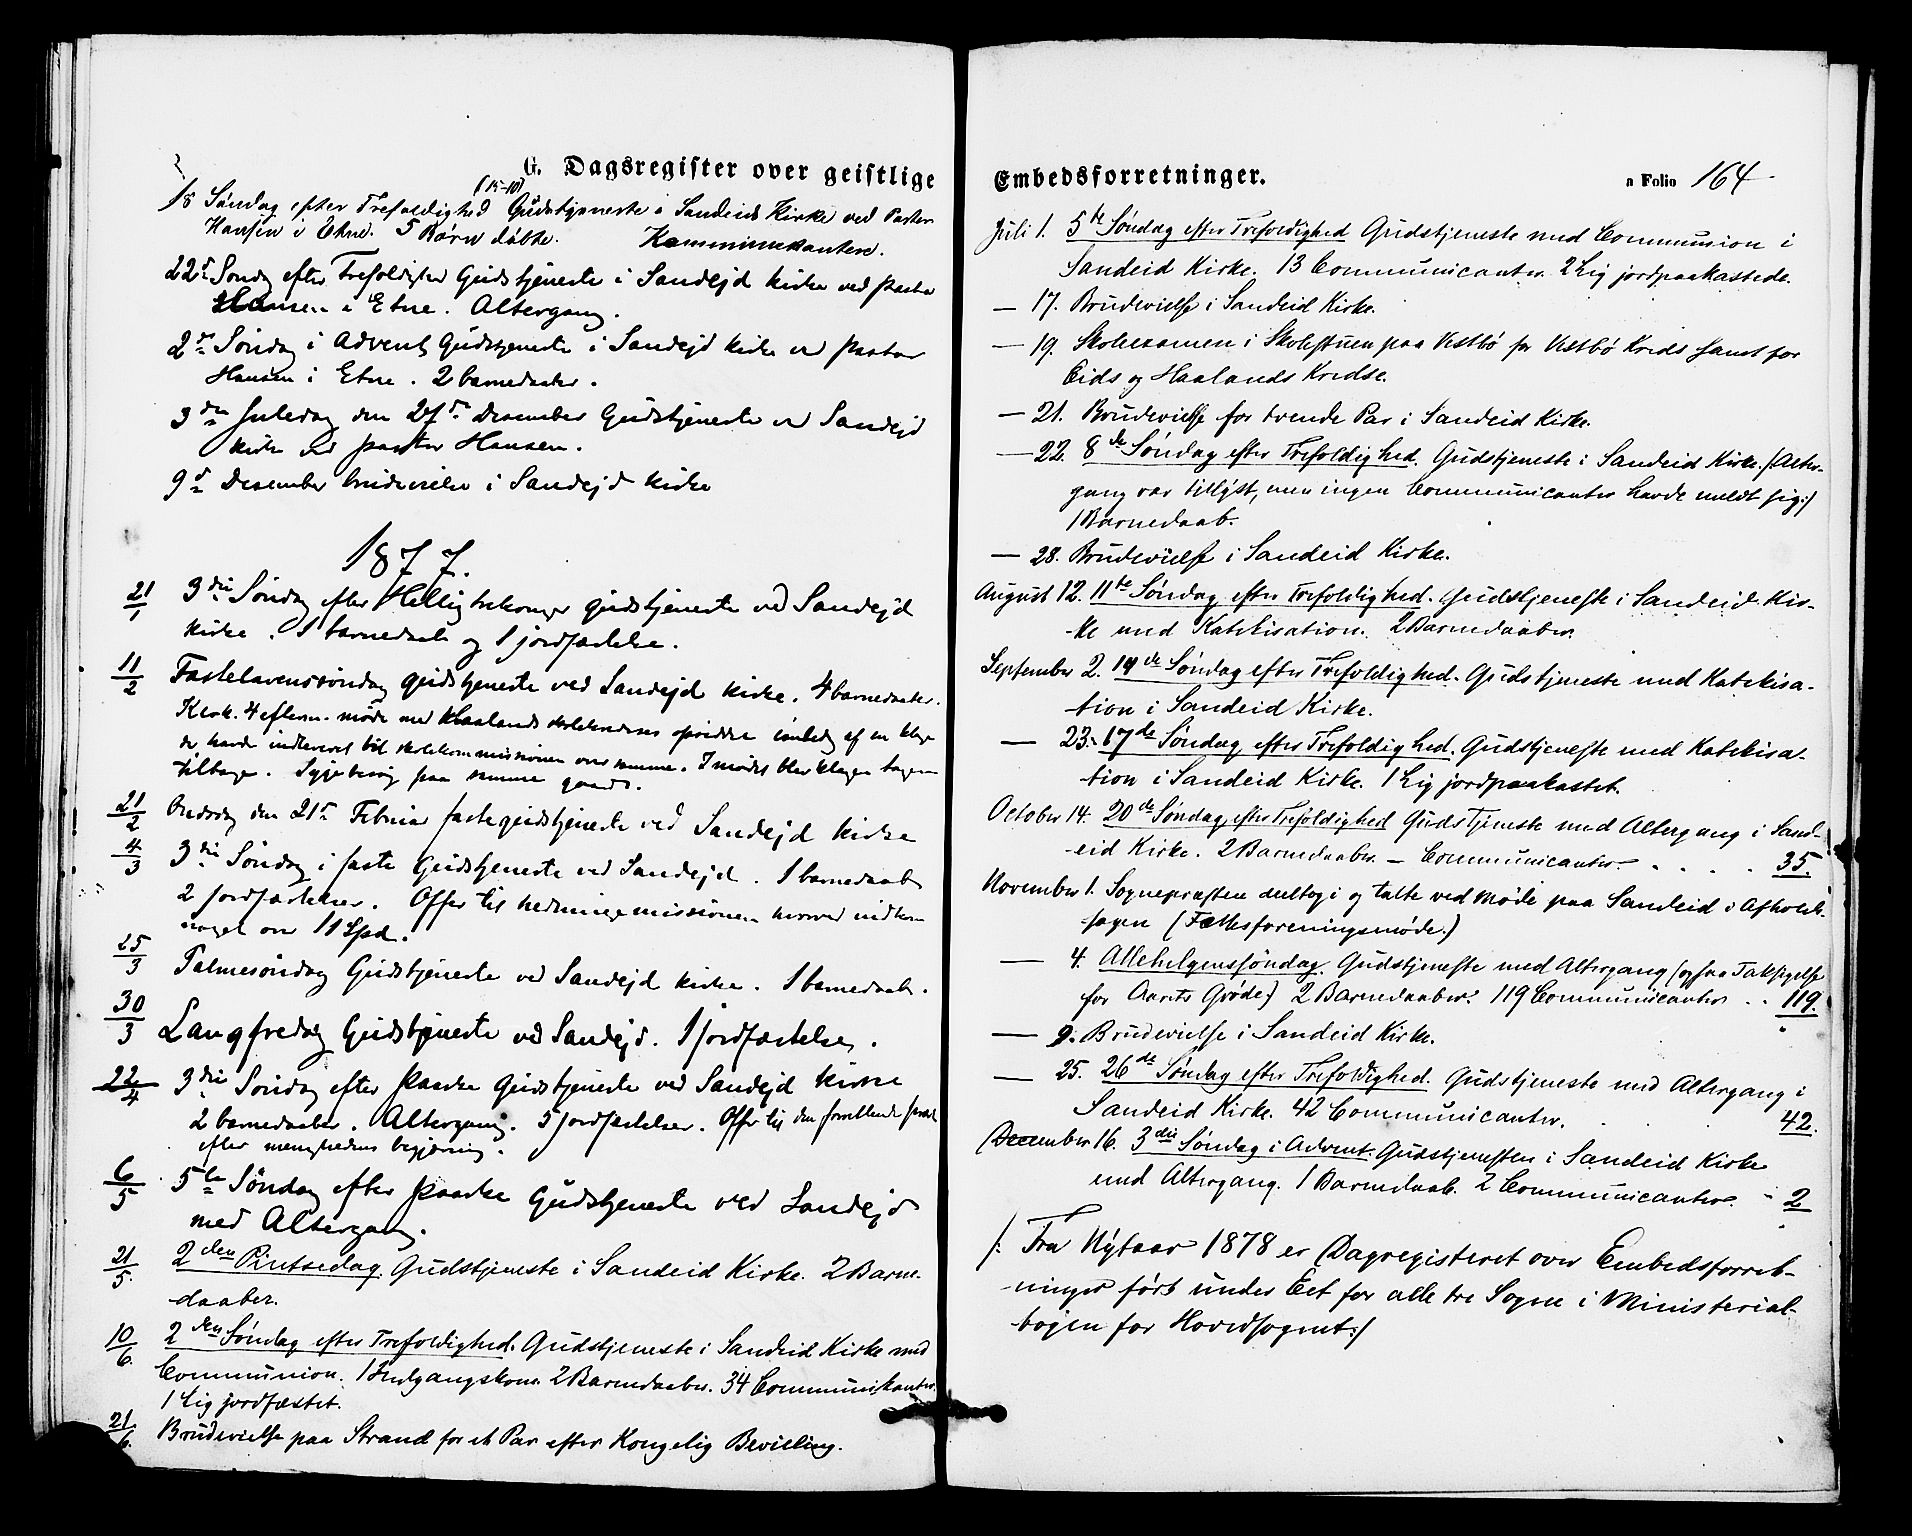 G. Dagsregister over geistlige
(15-10)
18 Søndag efter Trefoldighed Gudstjeneste i Sandeid Kirke ved Pastor
Hansen i Etne. 5 Børn døbte. Kommunikanter.
22 Søndag efter Trefoldighed Gudstjeneste i Sandejd kirke ved Pastor
Hansen i Etne. Altergang.
2 Søndag i Advent Gudstjeneste i Sandejd kirke ved Pastor
Hansen i Etne. 2 barnedaaber.
3die Juledag den 27 Desember Gudstjeneste ved Sandejd
kirke ved pastor Hansen.
9 Desember brudevielse i Sandejd kirke
1877.
21/1 3die Søndag efter Hellig trekonger gudstjeneste ved Sandejd
kirke. 1 barnedaab og 1 jordfæstelse.
11/2 Fastelavenssøndag gudstjeneste ved Sandejd kirke. 4 barnedaaber.
Klok. 4 efterm. møde med Haalands
de havde indleveret til skolekommissionen over samme. I mødet blev klagen tagen
tilbage. Sygebesøg paa samme gaard.
21/2 Onsdag den 21 Februar fastegudstjeneste ved Sandejd kirke
4/3 3die Søndag i faste Gudstjeneste ved Sandejd. 1 barnedaab
2 jordfæstelser. Offer til hedningemissionen hvorved indkom
noget over 11 Spd.
25/3 Palmesøndag Gudstjeneste ved Sandejd kirke. 1 barnedaab.
30/3 Langfredag Gudstjeneste ved Sandejd. 1 jordfæstelse.
22/4 3die Søndag efter Paaske Gudstjeneste ved Sandejd kirke
2 barnedaaber. Altergang. 5 jordfæstelser. Offer til den
efter menighedens begjæring.
6/5 5te Søndag efter Paaske Gudstjeneste ved Sandejd
med Altergang.
21/5 2den Pintsedag. Gudstjeneste i Sandeid Kirke. 2 Barne-
daaber.
10/6. 2den Søndag efter Trefoldighed. Gudstjeneste i Sandeid Kirke med
Communion. 1 Indgangskone. 2 Barnedaaber. 34 Communikanter.
1 Lig jordfæstet.
21/6. Brudevielse paa Strand for et Par efter Kongelig Bevilling.
Embedsforretninger. a Folio 164
Juli 1. 5te Søndag efter Trefoldighed Gudstjeneste med Communion i
Sandeid Kirke. 13 Communicanter. 2 Lig jordpaakastede.
— 17. Brudevielse i Sandeid Kirke.
— 19. Skoleexamen i Skolestuen paa Vestbø for Vestbø Kreds samt for
Eids og Haalands Kredse.
— 21. Brudevielse for tvende Par i Sandeid Kirke.
— 22. 8de Søndag efter Trefoldighed. Gudstjeneste i Sandeid Kirke. /:Alter-
gang var tillyst, men ingen Communicanter havde meldt sig:/
1 Barnedaab.
— 28. Brudevielse i Sandeid Kirke.
August 12. 11te Søndag efter Trefoldighed. Gudstjeneste i Sandeid Kir-
-ke med Katekisation. 2 Barnedaaber.
September 2. 14de Søndag efter Trefoldighed. Gudstjeneste med Katekisa-
-tion i Sandeid Kirke.
— 23. 17de Søndag efter Trefoldighed. Gudstjeneste med Katekisa-
-tion i Sandeid Kirke. 1 Lig jordpaakastet.
October 14. 20de Søndag efter Trefoldighed Gudstjeneste med Altergang i Sand-
eid Kirke. 2 Barnedaaber. — Communicanter. . . . . 35.
November 1. Sognepræsten deltog i og talte ved Møde paa Sandeid i Afholds-
sagen (Fællesforeningsmøde.)
— 4. Allehelgenssøndag. Gudstjeneste med Altergang (ogsaa Taksigelse
for Aarets Grøde.) 2 Barnedaaber. 119 Communicanter . . 119.
— 9. Brudevielse i Sandeid Kirke.
— 25. 26de Søndag efter Trefoldighed. Gudstjeneste med Altergang i
Sandeid Kirke. 42 Communicanter. . 42.
December 16. 3die Søndag i Advent. Gudstjenesten i Sandeid Kirke
med Altergang. 1 Barnedaab. 2 Communicanter. 2
/: Fra Nytaar 1878 er Dagregisteret over Embedsforret-
-ninger ført under Eet for alle tre Sogne i Ministerial-
-bogen for Hovedsognet:/